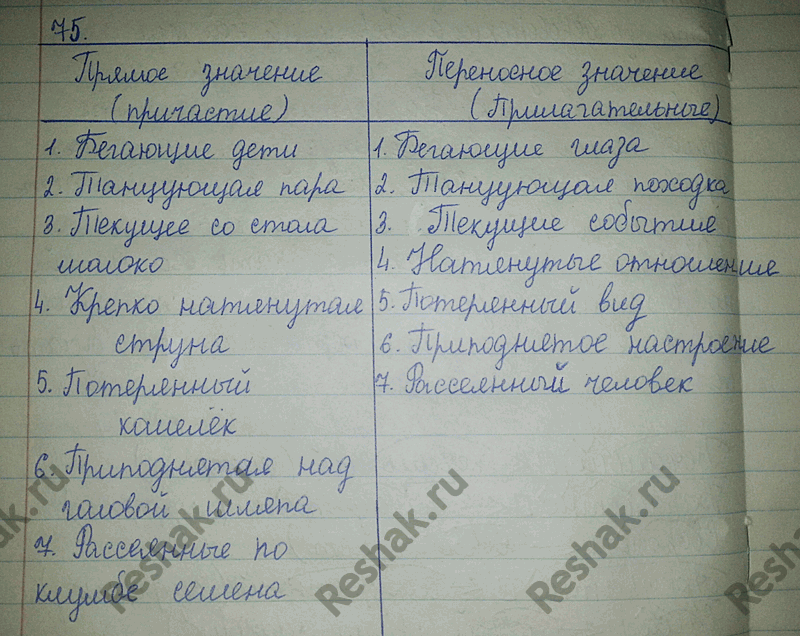 75.
Прямое значение
(причастие)
1. Бегающие дети
2. Танцующая пара
3. Текущее со стола
молоко
4. Крепко натянутая
струна
5. Потерянный
кошелёк
6. Приподнятая над
головой шляпа
7. Рассеянные по
клумбе семена
Переносное значение
(Прилагательные)
1. Бегающие глаза
2. Танцующая походка
3. Текущие событие
4. Натянутые отношения
5. Потерянный вид
6. Приподнятое настроение
7. Рассеянный человек
Reshak.ru
Reshak.ru
Reshak.ru
Reshak.ru
Reshak.ru